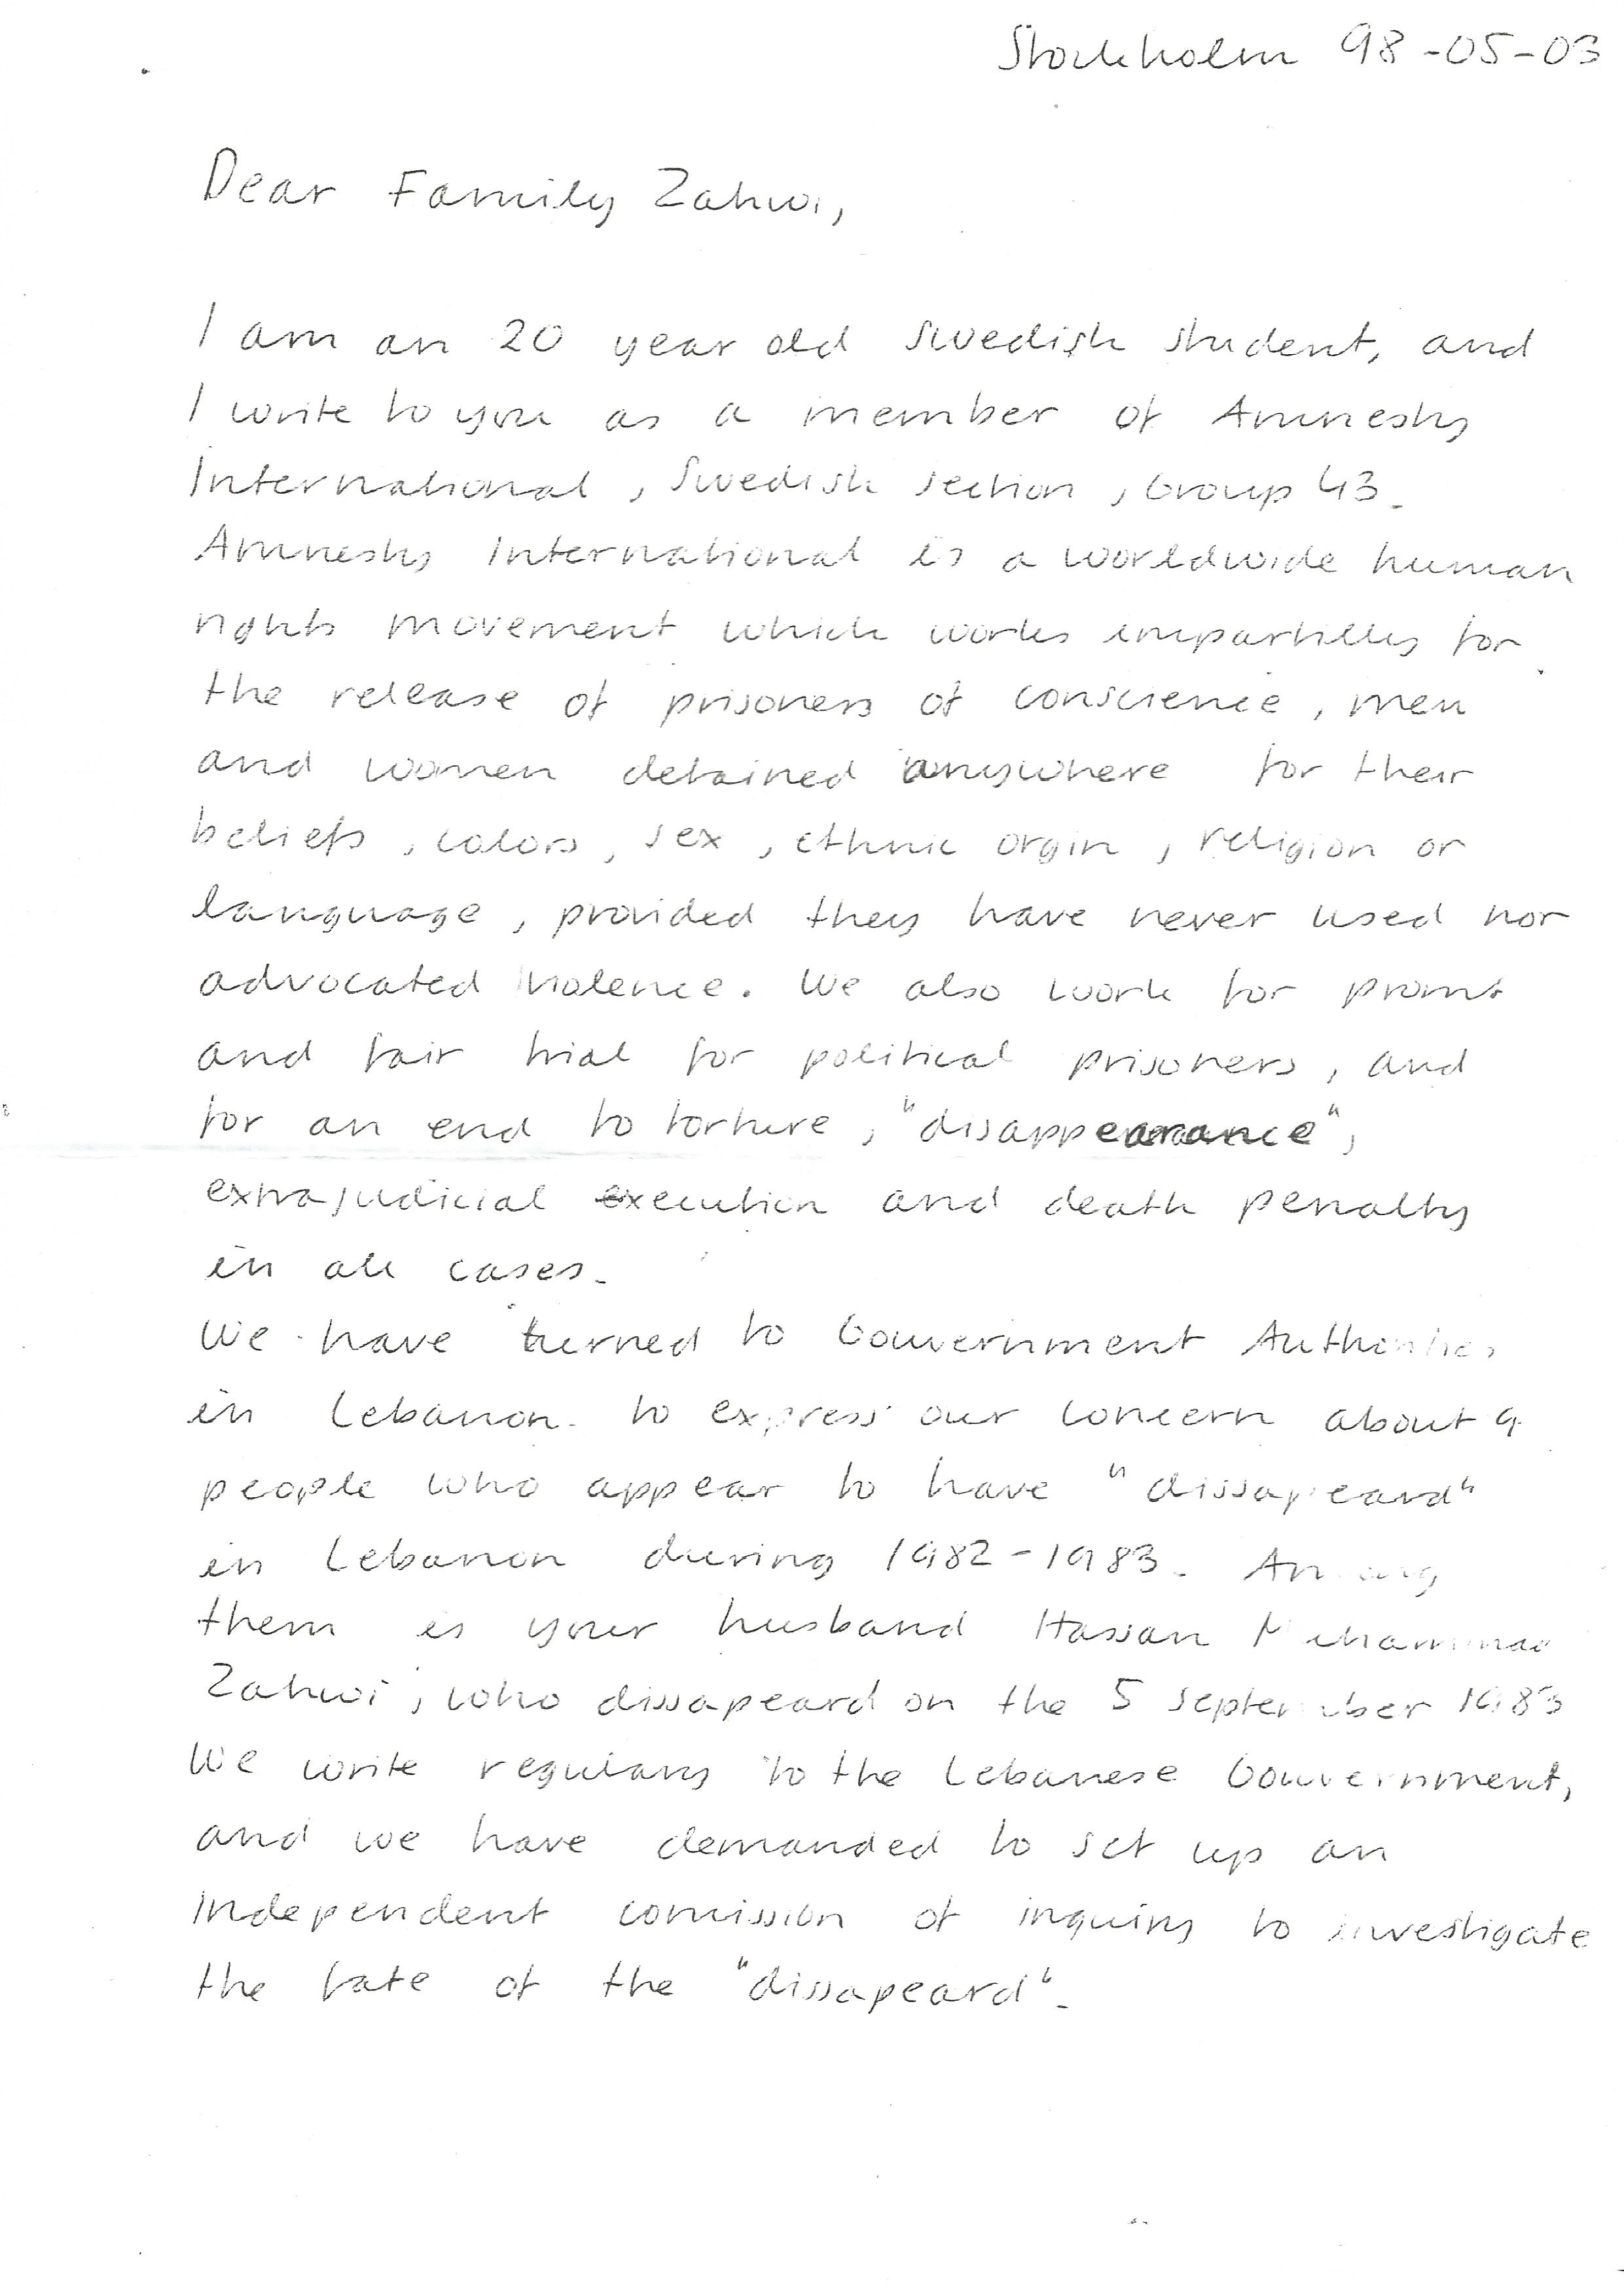 Stockholm 98-05-03
Dear Family Zahwi,
I am an 20 year old swedish student, and
I write to you as a member of Amnesty
International, Swedish section, Group 43.
Amnesty International is a worldwide human
rights movement which works impartilly for
the release of prisoners of conscience, men
and women detained anywhere for their
beliefs, colors, sex, ethnic orgin, religion or
language, provided they have never used nor
advocated violence. We also work for promt
and fair trial for political prisoners, and
for an end to torture, "disappearance",
extrajudicial execution and death penalty
in all cases.
We have turned to Gouvernment Authorities
in Lebanon to express our concern about 9
people who appear to have "dissapeard"
in Lebanon during 1982-1983. Among
them is your husband Hassan Muhammad
Zahwi, who dissapeard on the 5 september 1983
We write regulary to the Lebanese Gouvernment,
and we have demanded to set up an
independent comission of inquiry to investigate
the fate of the "dissapeard".